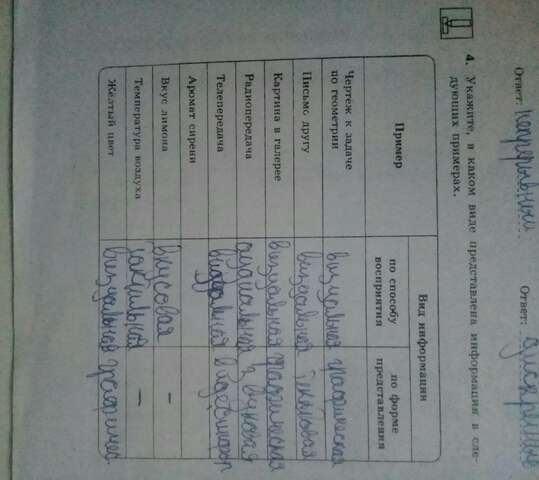 Ответ: непрерывный
Ответ: дискретный
4. Укажите, в каком виде представлена информация в сле-
дующих примерах.
Пример
Вид информации
по способу
восприятия
по форме
представления
Чертёж к задаче
по геометрии
визуальная графическая
Письмо другу визуальная текстовая
Картина в галерее визуальная графическая
Радиопередача аудиальная звуковая
Телепередача
Аромат сирени
Вкус лимона вкусовая —
Температура воздуха тактильная —
Жёлтый цвет визуальная графичес